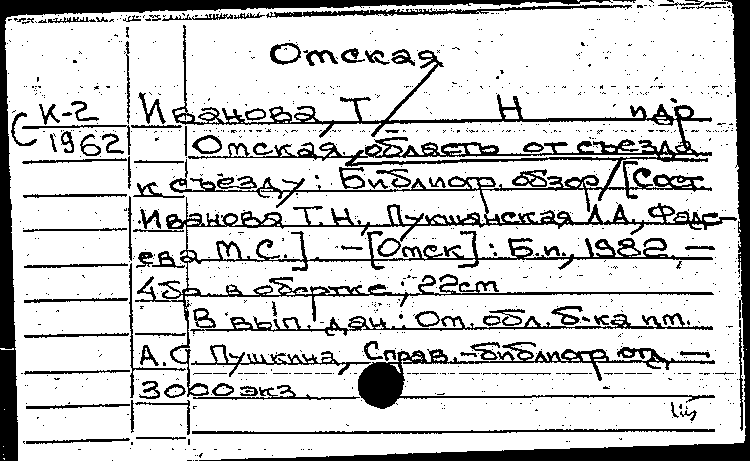 Отская
К-2 Иванова, Т Н и др
С 1962 Отская область от съезда
к съезду: Библиогр. обзор / [Сост
Иванова Т.Н., Пукшанская Л.А., Фаде-
ева М.С.] - [Омск] : Б.и., 1982, -
4бр в обертке ; 22 cm
В вып. дан.: Ом. обл. б-ка им.
А.С. Пушкина, Справ.-библиогр. отд, -
3000 экз.